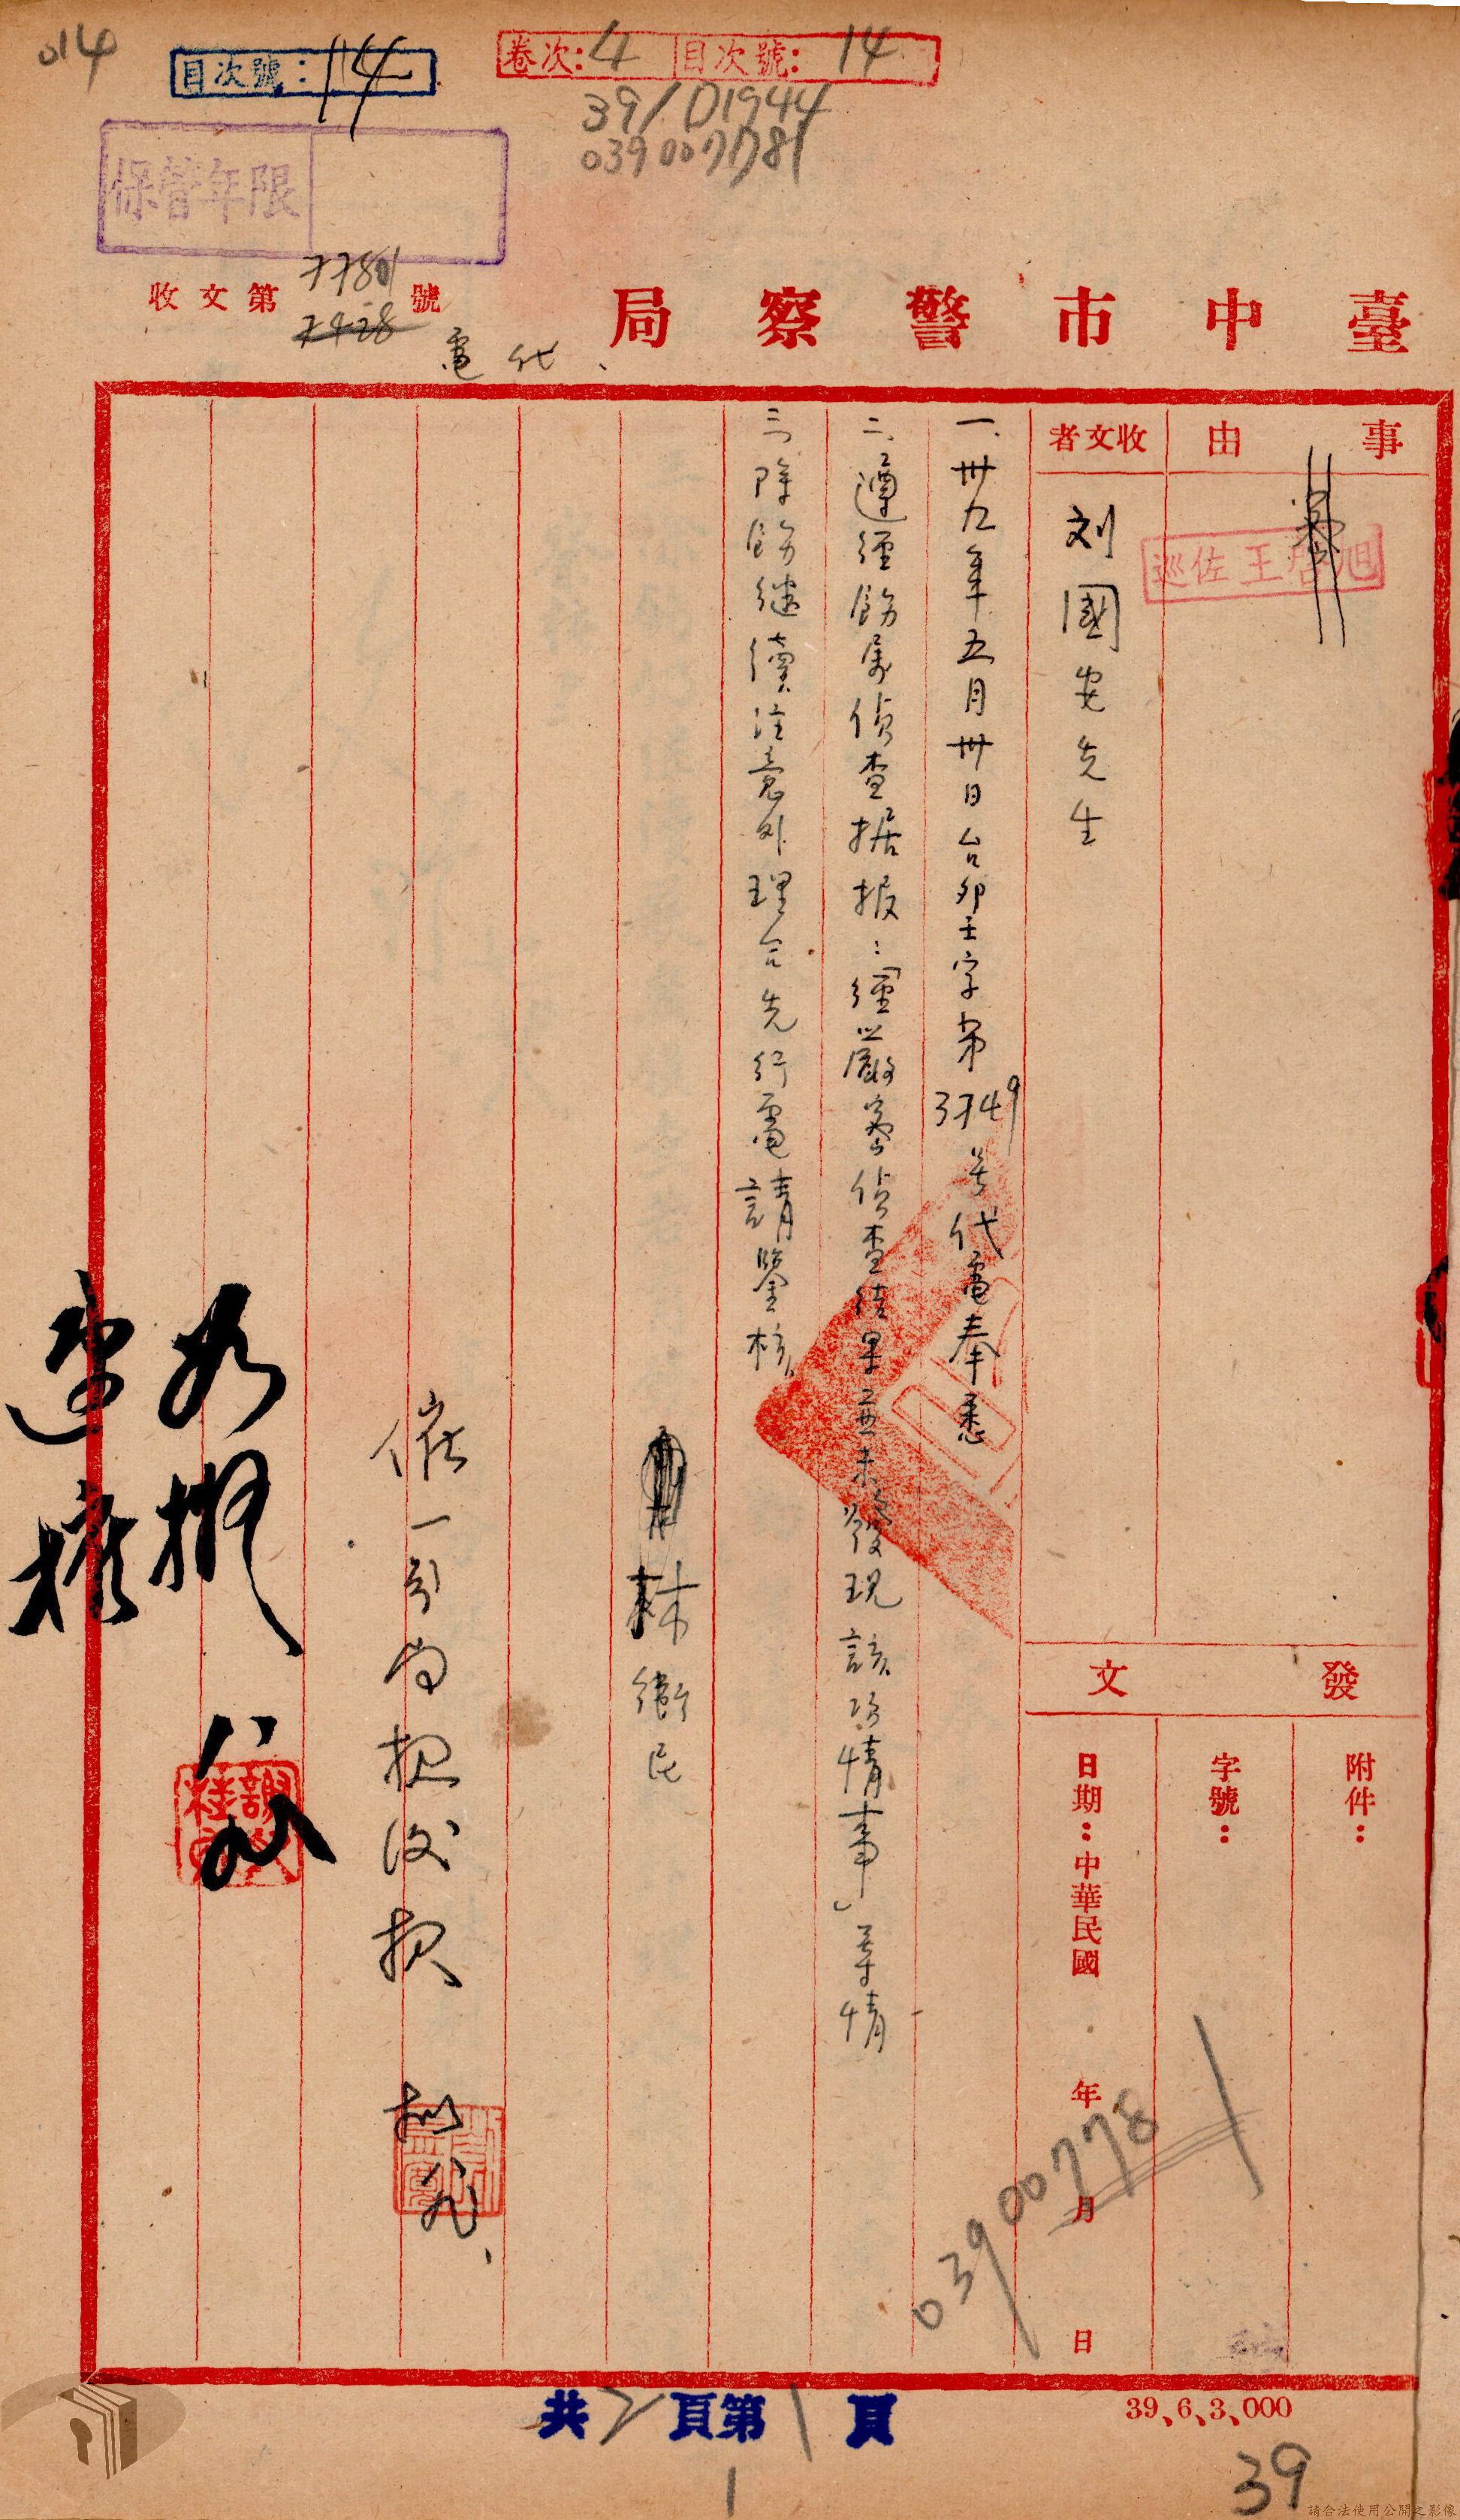 014
目次號：14
卷次：4 目次號：14
39/D1944
03900778
保管年限
收文第7780號
7428
臺中市警察局
代電
事由
巡佐王
收文者
刘國安先生
一、卅九年五月卅日台卯壬字第3749号代電奉悉
二、遵經飭屬偵查据报：「經嚴密偵查結果並未發現該項情事」等情
三、除飭継續注意外理合先行電請鑒核
林衛民
發文
附件：
字號：
日期：中華民國 年 月 日
03900778
如擬
謝
共2頁第1頁
1
39、6、3、000
39
請合法使用公開之影像